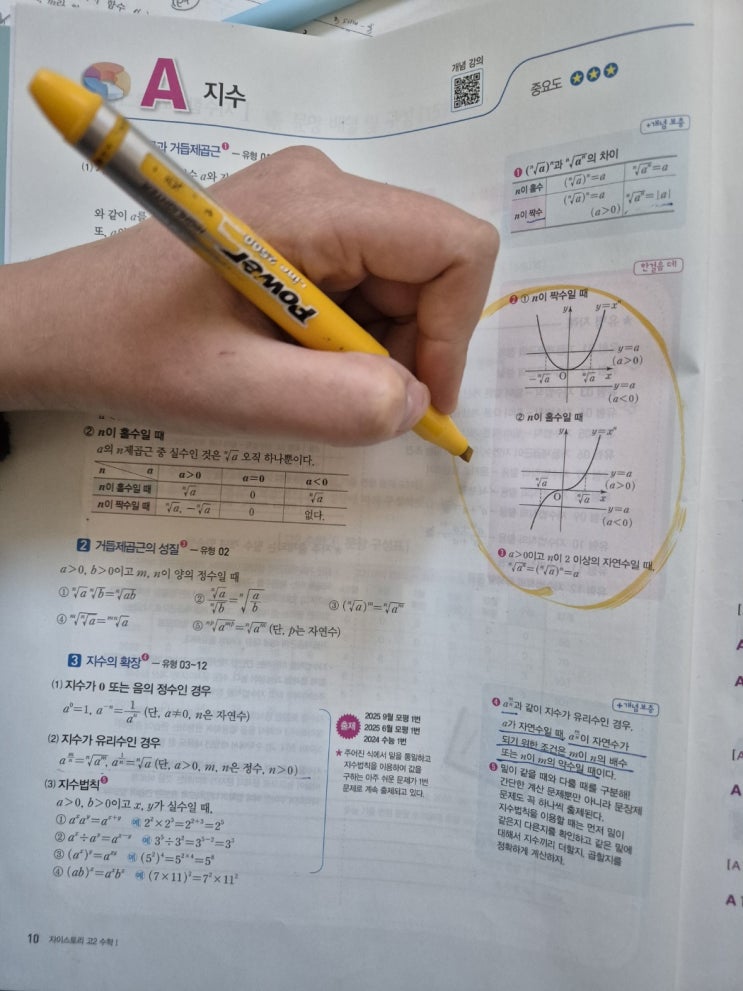 A 지수
개념 강의
중요도
거듭제곱근❶ — 유형
(1)
와 같이 a를
또,
+개념 보충
❶ (ⁿ√a)ⁿ과 ⁿ√aⁿ의 차이
n이 홀수 (ⁿ√a)ⁿ=a ⁿ√aⁿ=a
n이 짝수 (ⁿ√a)ⁿ=a (a>0) ⁿ√aⁿ=|a|
한걸음 더
❷ ① n이 짝수일 때
y y=xⁿ
y=a
(a>0)
-ⁿ√a O ⁿ√a x
y=a
(a<0)
② n이 홀수일 때
y y=xⁿ
ⁿ√a y=a
(a>0)
O ⁿ√a x
y=a
(a<0)
❸ a>0이고 n이 2 이상의 자연수일 때,
ⁿ√aⁿ=(ⁿ√a)ⁿ=a
② n이 홀수일 때
a의 n제곱근 중 실수인 것은 ⁿ√a 오직 하나뿐이다.
n a a>0 a=0 a<0
n이 홀수일 때 ⁿ√a 0 ⁿ√a
n이 짝수일 때 ⁿ√a, -ⁿ√a 0 없다.
2 거듭제곱근의 성질❸ — 유형 02
a>0, b>0이고 m, n이 양의 정수일 때
① ⁿ√a ⁿ√b=ⁿ√ab ② ⁿ√a/ⁿ√b=ⁿ√(a/b) ③ (ⁿ√a)ᵐ=ⁿ√aᵐ
④ ᵐ√ⁿ√a=ᵐⁿ√a ⑤ ⁿᵖ√aᵐᵖ=ⁿ√aᵐ (단, p는 자연수)
3 지수의 확장❹ — 유형 03~12
(1) 지수가 0 또는 음의 정수인 경우
a⁰=1, a⁻ⁿ=1/aⁿ (단, a≠0, n은 자연수)
(2) 지수가 유리수인 경우
a^(m/n)=ⁿ√aᵐ, a^(1/n)=ⁿ√a (단, a>0, m, n은 정수, n>0)
(3) 지수법칙❺
a>0, b>0이고 x, y가 실수일 때,
① aˣaʸ=aˣ⁺ʸ 예 2²×2³=2²⁺³=2⁵
② aˣ÷aʸ=aˣ⁻ʸ 예 3⁵÷3²=3⁵⁻²=3³
③ (aˣ)ʸ=aˣʸ 예 (5²)⁴=5²ˣ⁴=5⁸
④ (ab)ˣ=aˣbˣ 예 (7×11)²=7²×11²
출제
2025 9월 모평 1번
2025 6월 모평 1번
2024 수능 1번
★ 주어진 식에서 밑을 통일하고
지수법칙을 이용하여 값을
구하는 아주 쉬운 문제가 1번
문제로 계속 출제되고 있다.
+개념 보충
❹ a^(m/n)과 같이 지수가 유리수인 경우,
a가 자연수일 때, a^(m/n)이 자연수가
되기 위한 조건은 m이 n의 배수
또는 n이 m의 약수일 때이다.
❺ 밑이 같을 때와 다를 때를 구분해!
간단한 계산 문제뿐만 아니라 문장제
문제도 꼭 하나씩 출제된다.
지수법칙을 이용할 때는 먼저 밑이
같은지 다른지를 확인하고 같은 밑에
대해서 지수끼리 더할지, 곱할지를
정확하게 계산하자.
10 자이스토리 고2 수학 I
Power
-line 2500